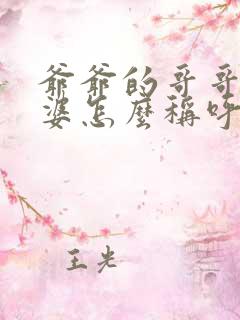 爺爺的哥哥
婆怎麼稱呼
王光